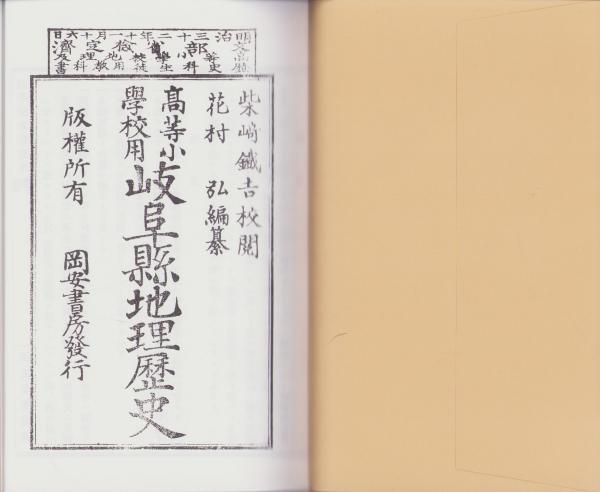 明治三十二年十一月十六日
文部省檢定濟
歷史科生徒用教科書
柴﨑鐵吉校閲
花村 弘編纂
高等小
學校用
岐阜縣地理歷史
版權所有 岡安書房發行